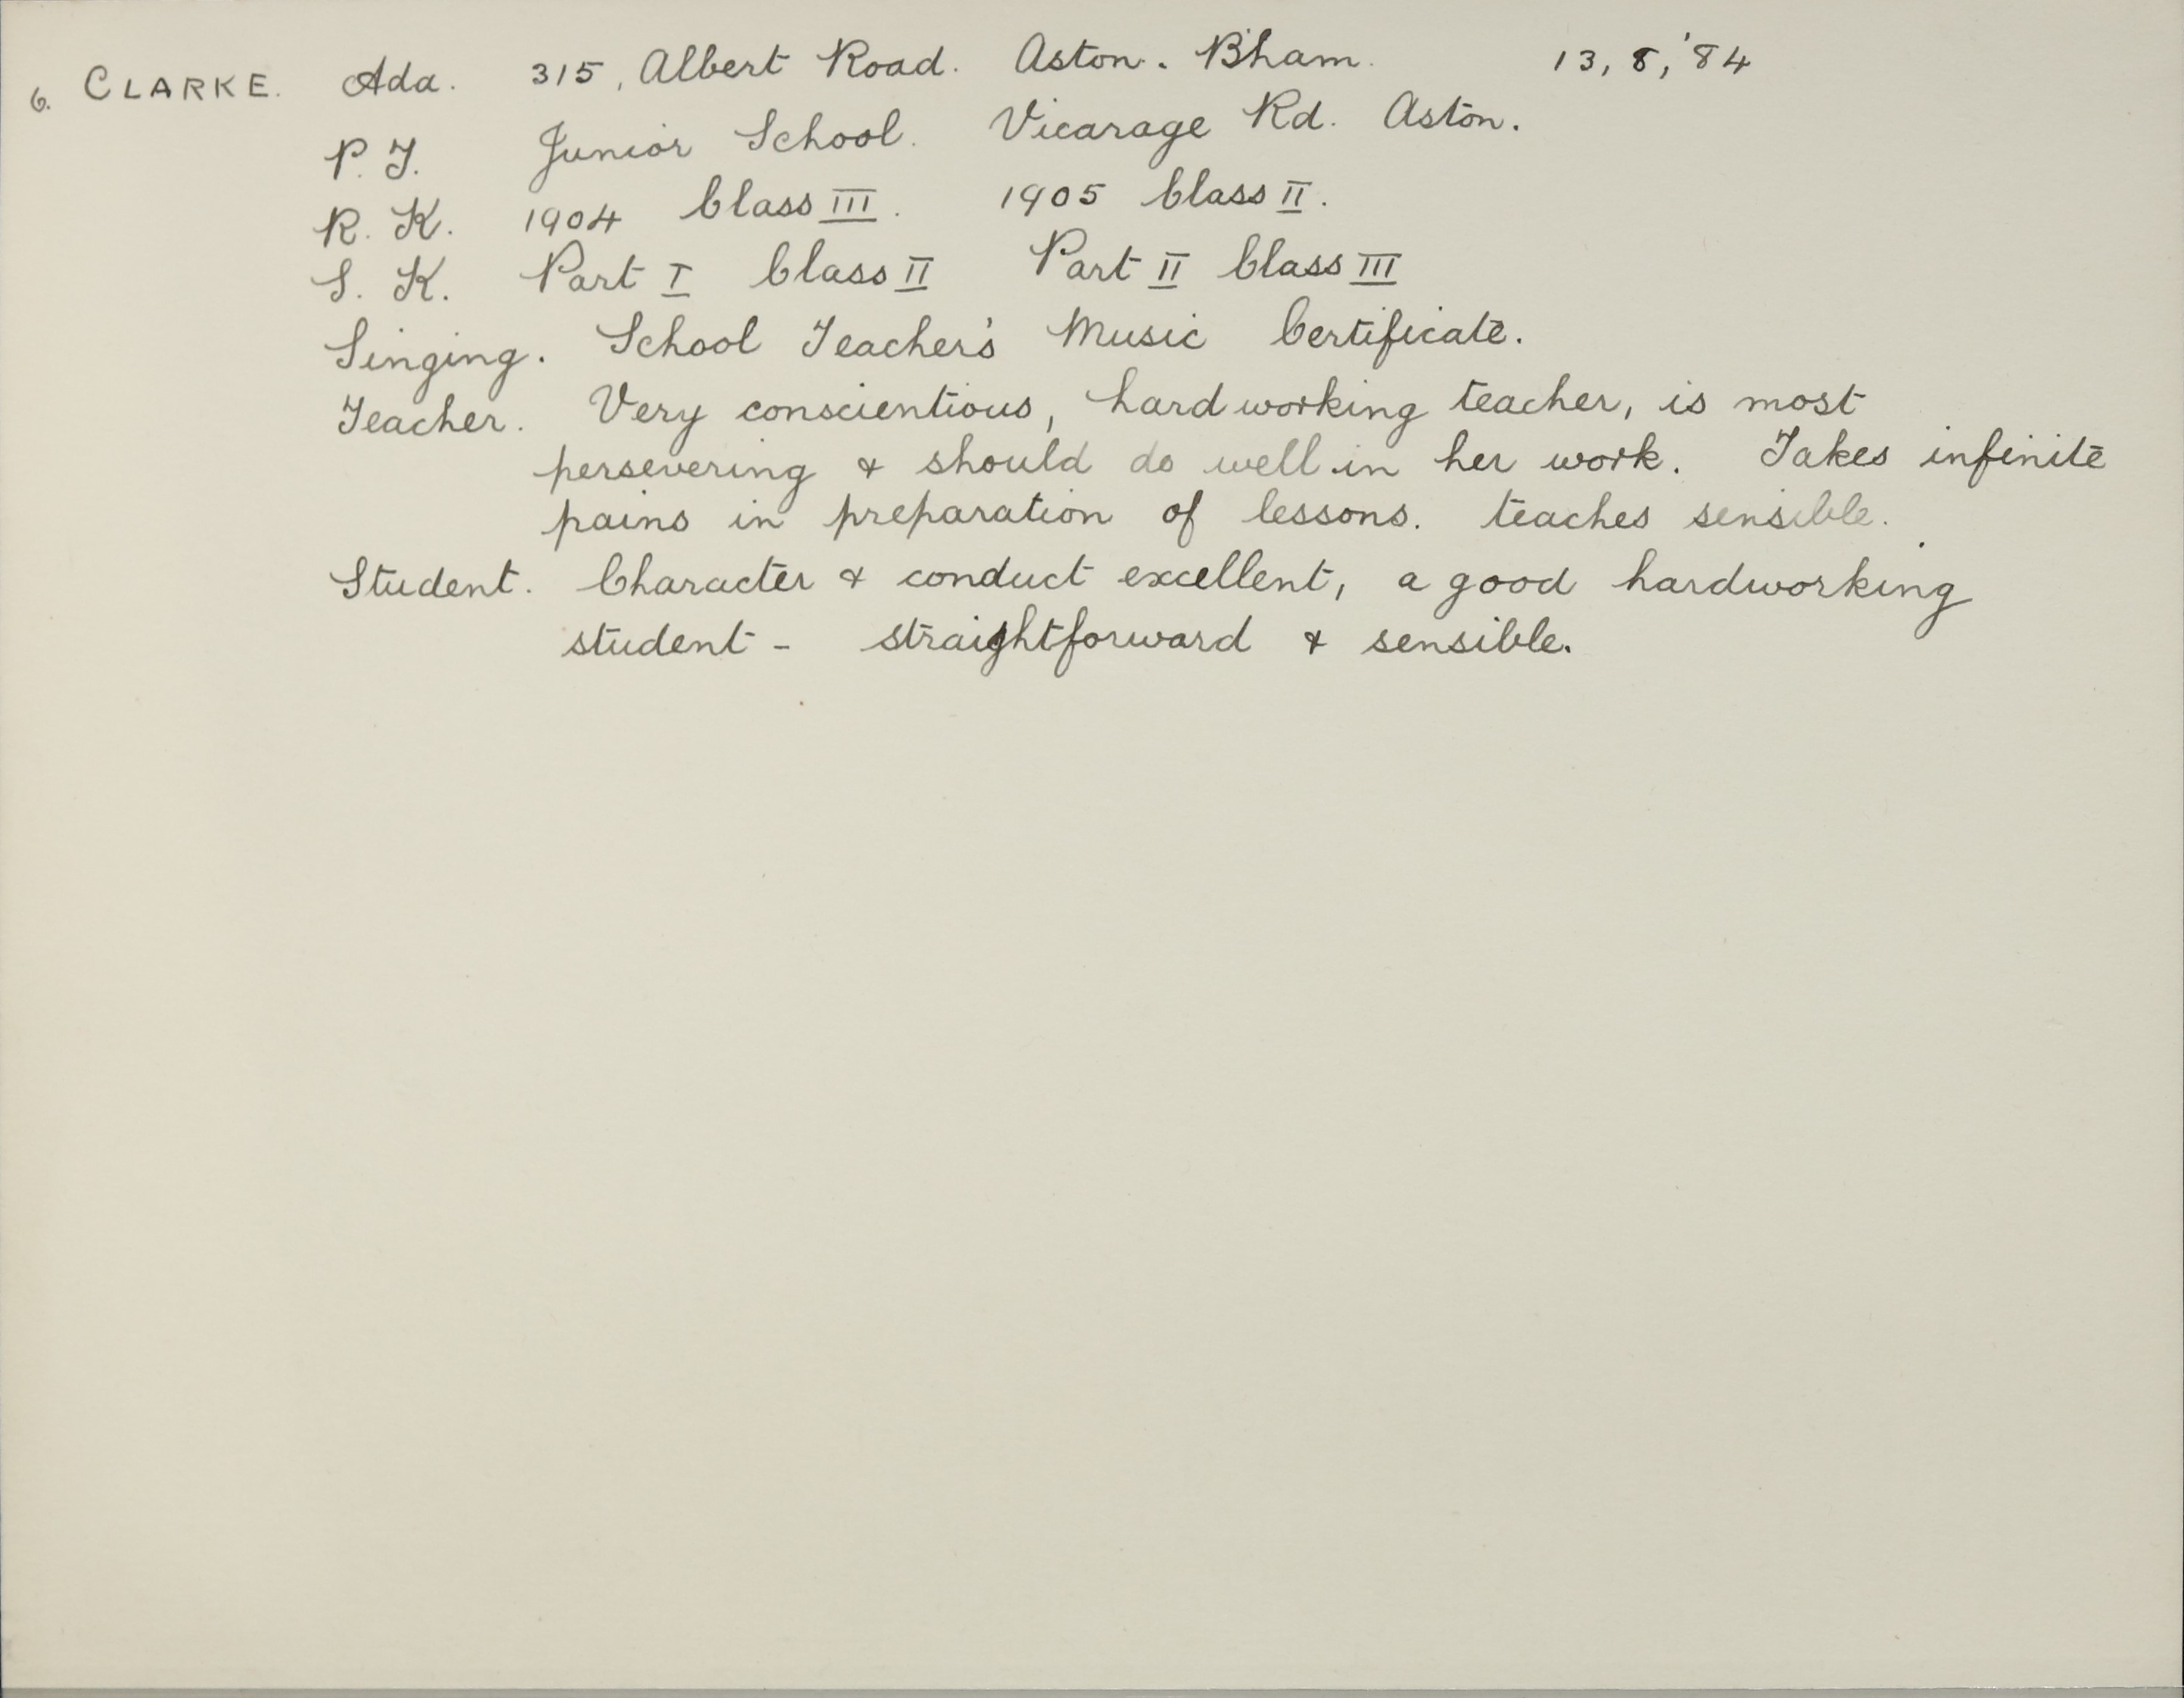 6. CLARKE. Ada. 315, Albert Road. Aston. B'ham. 13, 8, '84
P. T. Junior School. Vicarage Rd. Aston.
R. K. 1904 Class III. 1905 Class II.
S. K. Part I Class II Part II Class III
Singing. School Teacher's Music Certificate.
Teacher. Very conscientious, hardworking teacher, is most
persevering & should do well in her work. Takes infinite
pains in preparation of lessons. teaches sensible.
Student. Character & conduct excellent, a good hardworking
student - straightforward & sensible.